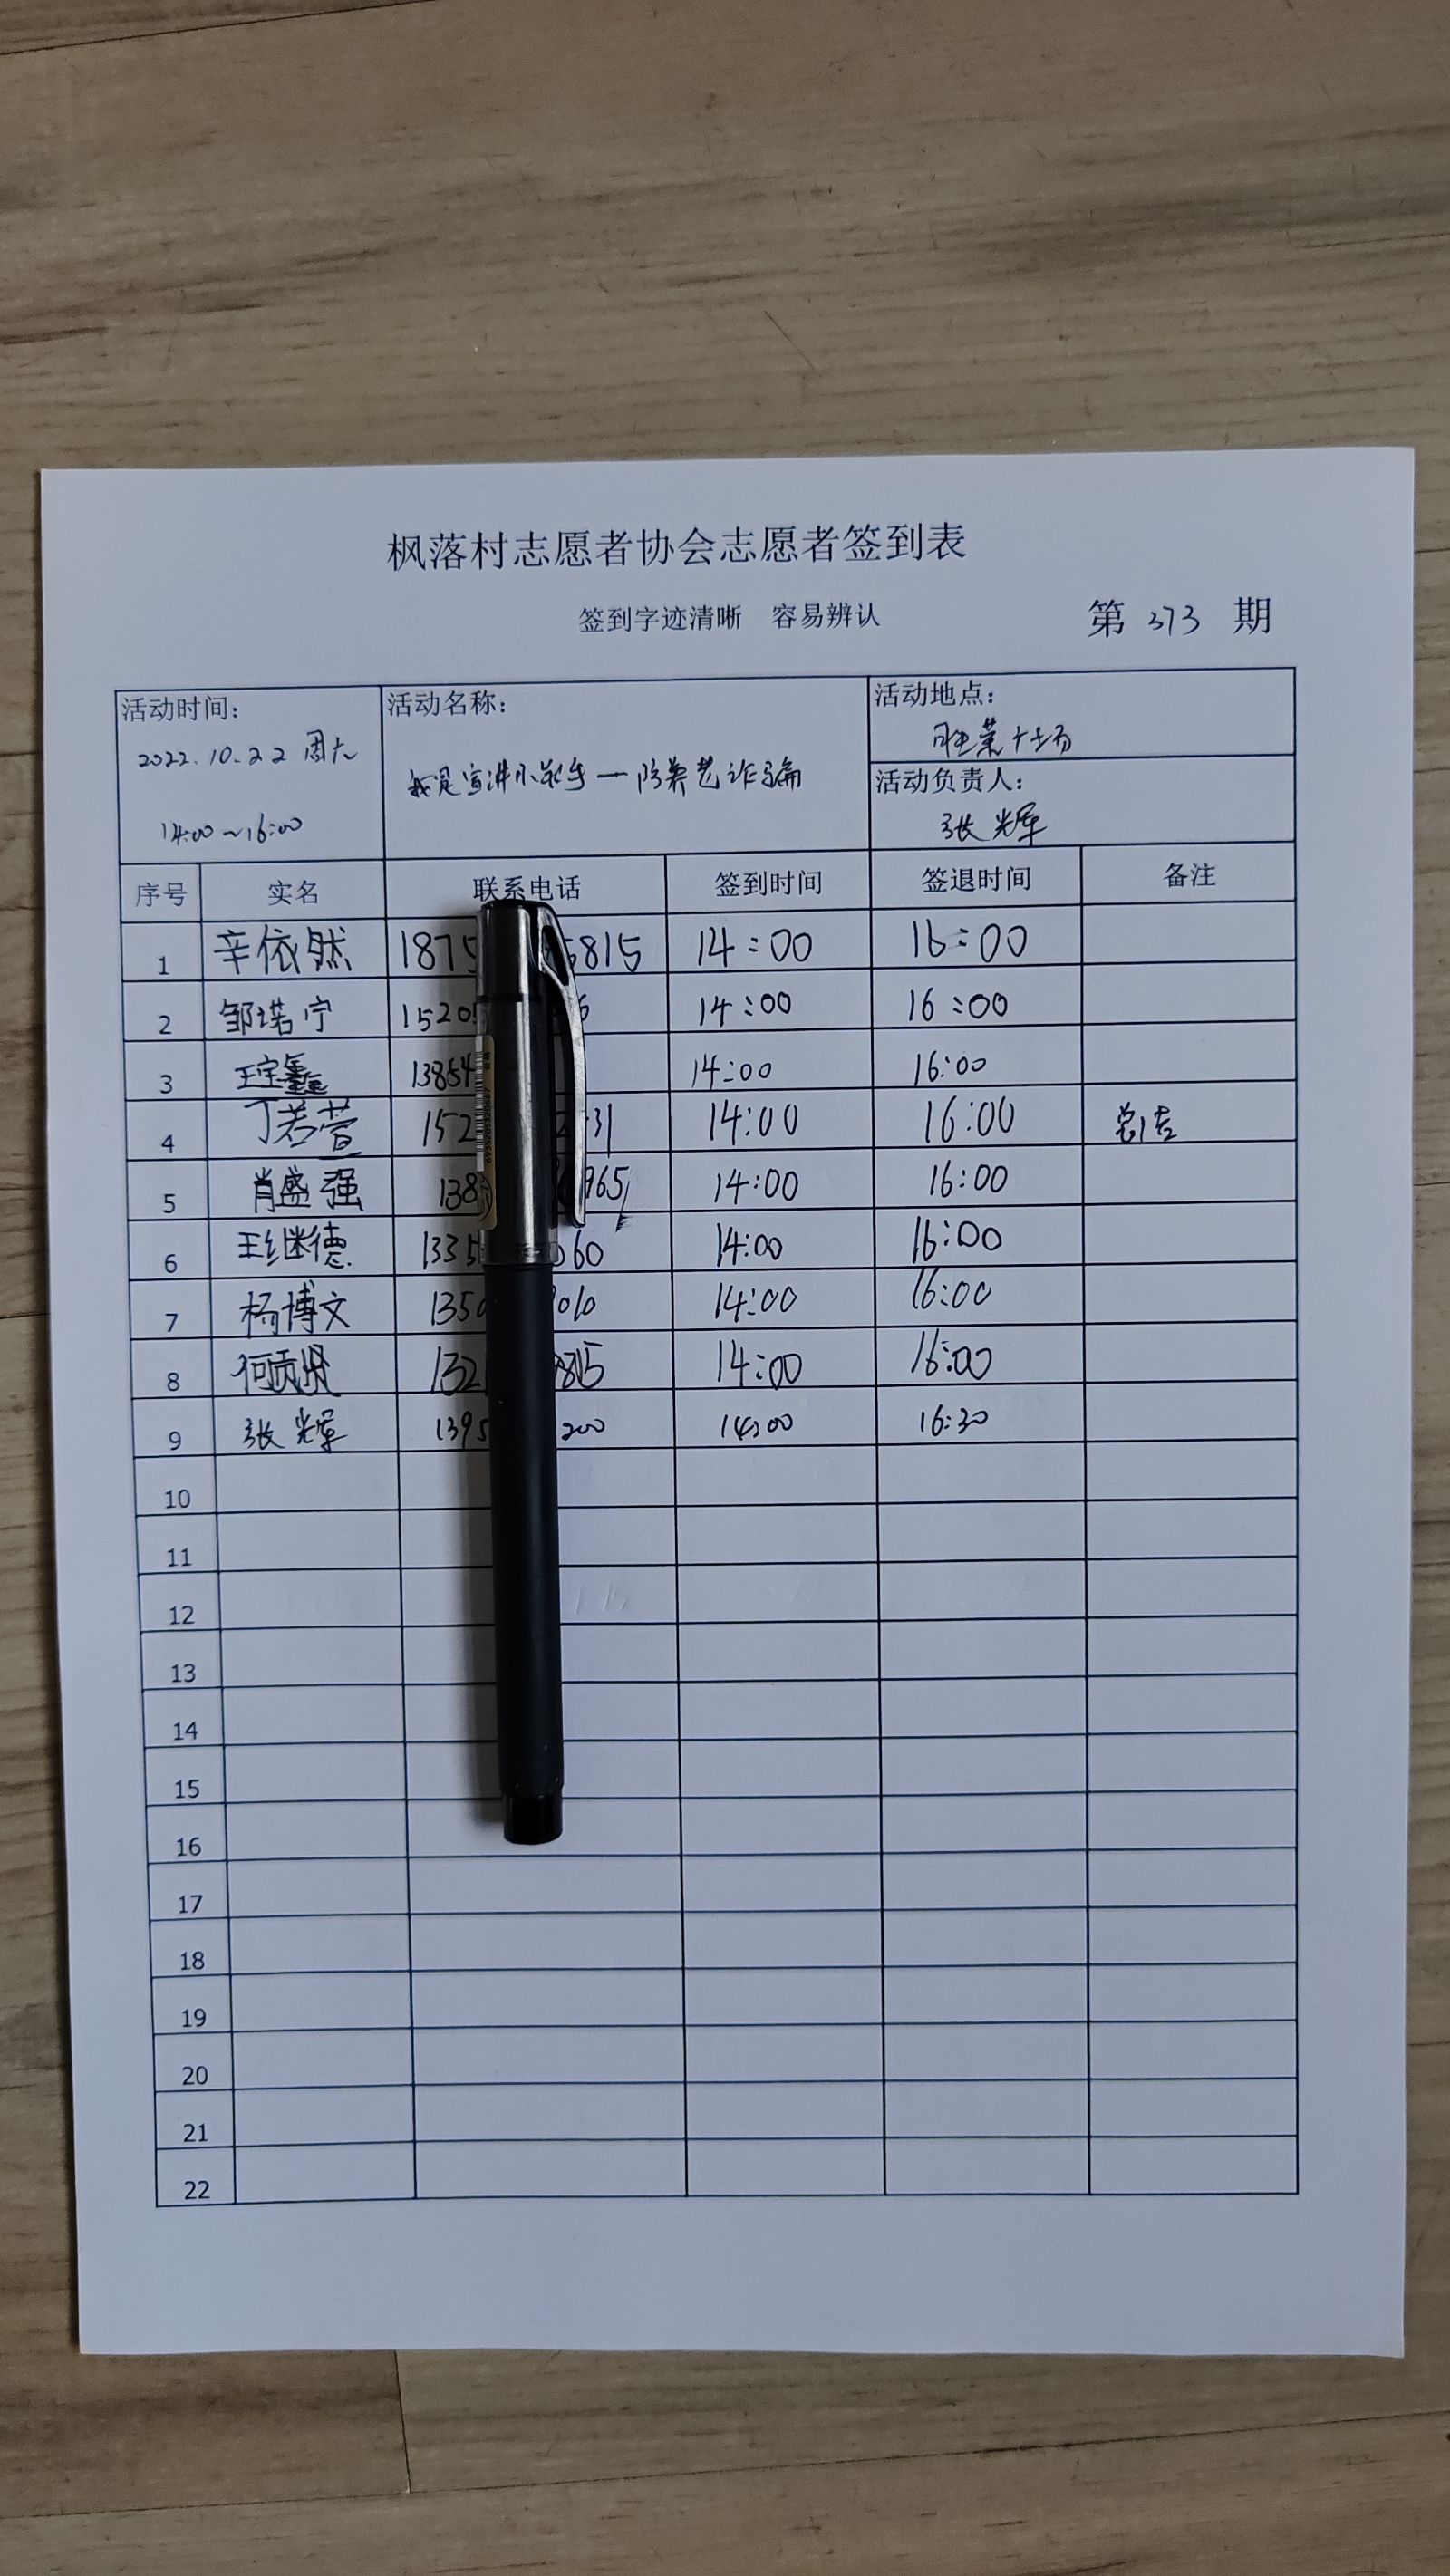 枫落村志愿者协会志愿者签到表
签到字迹清晰 容易辨认 第 373 期
活动时间: 活动名称: 活动地点:
2022.10.22 周六 广场
我是宣讲小能手一防养老诈骗 活动负责人:
14:00~16:00 张辉
序号 实名 联系电话 签到时间 签退时间 备注
1 辛依然 1875 5815 14:00 16:00
2 邹诺宁 1520 6 14:00 16:00
3 王宝鑫 13854 14:00 16:00
4 丁若萱 152 31 14:00 16:00
5 肖盛强 138 965 14:00 16:00
6 王继德 1335 060 14:00 16:00
7 杨博文 135 010 14:00 16:00
8 何贡贤 132 815 14:00 16:00
9 张辉 1395 200 14:00 16:30
10
11
12
13
14
15
16
17
18
19
20
21
22